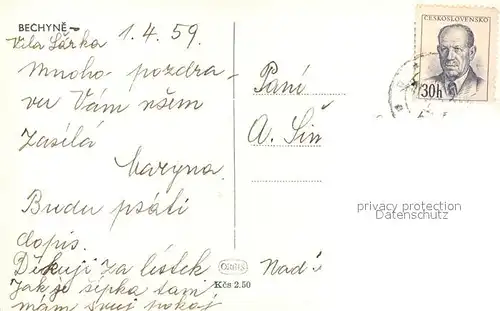 BECHYNĚ
Vila Šárka 1. 4. 59.
Mnoho pozdra-
vu Vám všem
zasílá
Maryna.
Budu psáti
dopis.
Děkuji za lístek
Jak je šipka tam
mám svuj pokoj
ČESKOSLOVENSKO
30h
Paní
A. Šim
privacy protection
Datenschutz
Orbis
Nad
Kčs 2.50